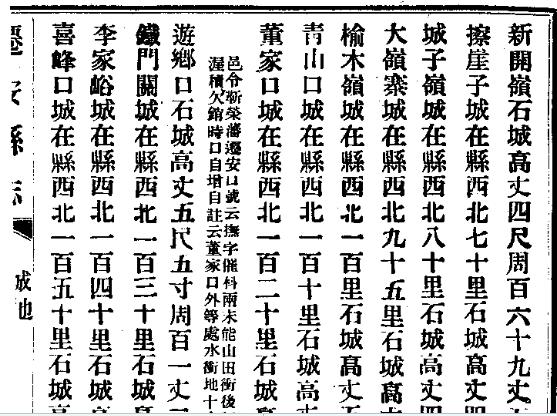 新開嶺石城高丈四尺周百六十九丈
擦崖子城在縣西北七十里石城高丈四
城子嶺城在縣西北八十里石城高丈四
大嶺寨城在縣西北九十五里石城高丈
榆木嶺城在縣西北一百里石城高丈
青山口城在縣西北一百十里石城高丈
董家口城在縣西北一百二十里石城高
邑令靳榮藩遷安口號云撫字催科兩未能山田衝後
渥積欠館時口自增自註云董家口外等處水衝地十
遊鄉口石城高丈五尺五寸周百一丈
鐵門關城在縣西北一百三十里石城高
李家峪城在縣西北一百四十里石城高
喜峰口城在縣西北一百五十里石城高
遷安縣志
城池